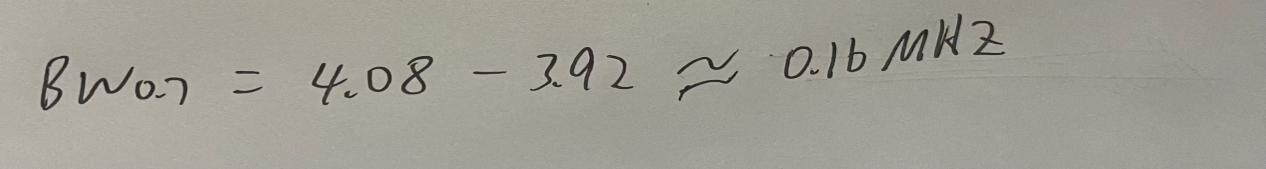 BW0.7 = 4.08 - 3.92 ≈ 0.16 MHZ